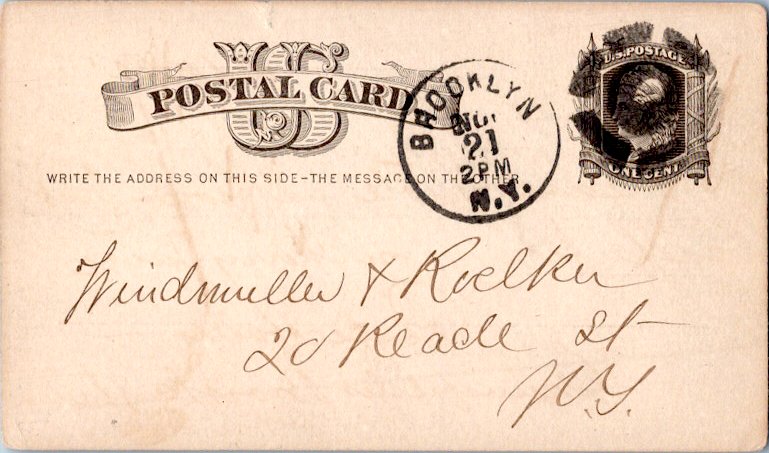 US
POSTAL CARD
WRITE THE ADDRESS ON THIS SIDE-THE MESSAGE ON THE OTHER
BROOKLYN
NOV
21
2PM
N.Y.
U.S. POSTAGE
ONE CENT
Windmuller & Roelker
20 Reade St
N.Y.